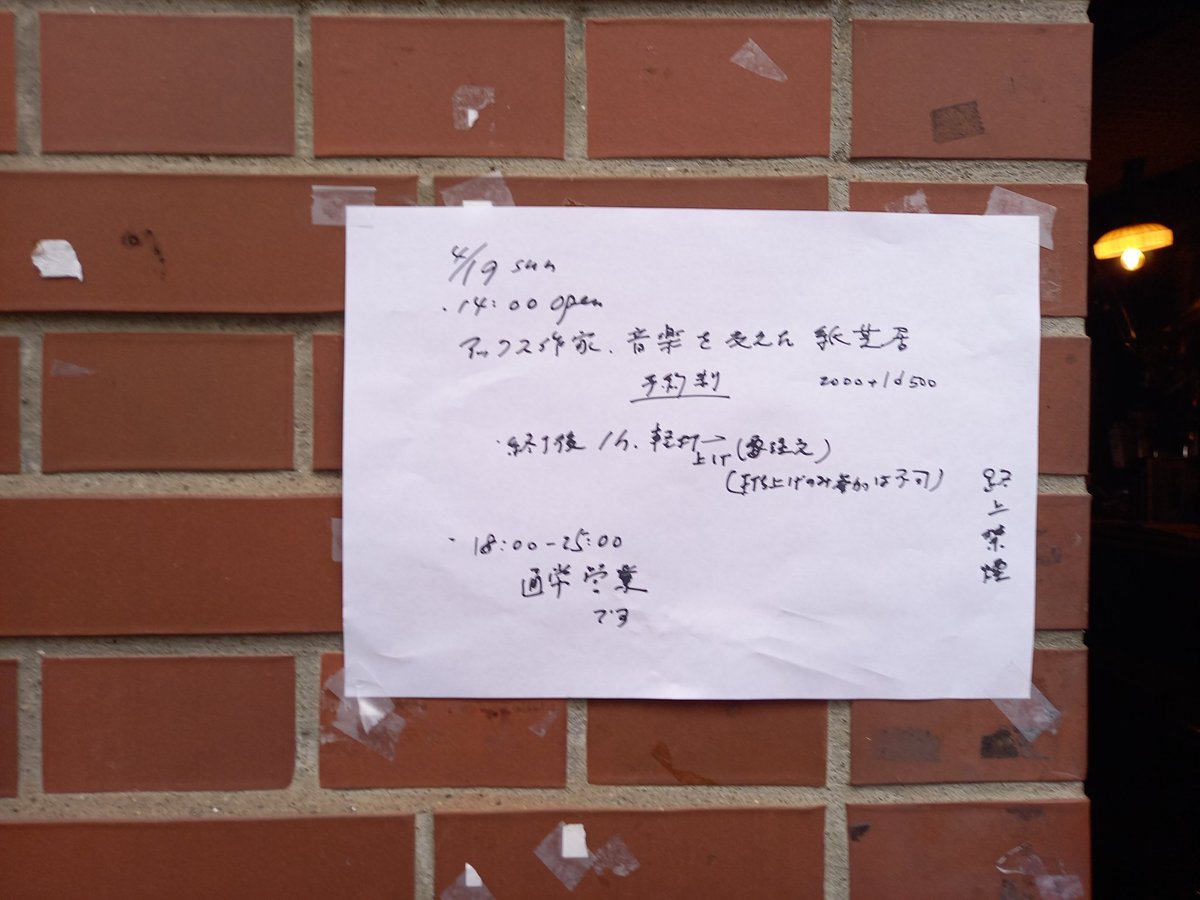 4/19 sun
・14:00 open
アックス作家、音楽を交えた紙芝居
予約制 2000+1d500
・終了後 1h、軽打→
上げ (要注文)
(打ち上げのみ参加は不可)
・18:00-25:00
通常営業
です
路上禁煙